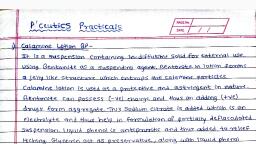 P'ceutics Practicals
DATE / /
1) Calamine Lotion BP -
It is a suspension containing Indiffusible Solid for External use
Using Bentonite as a suspending agent, Bentonite in lotion forms
a jelly like structure which entraps the calamine particles
Calamine lotion is used as a protective and astringent in nature.
Bentonite can possess (-ve) charge and thus on adding (+ve)
drugs form aggregates. Thus Sodium citrate is added which is an
electrolyte and thus help in formulation of partially deflocculated
suspension. liquid phenol is antipruritic and thus added to relief
itching. Glycerin act as preservative, along with liquid phenol